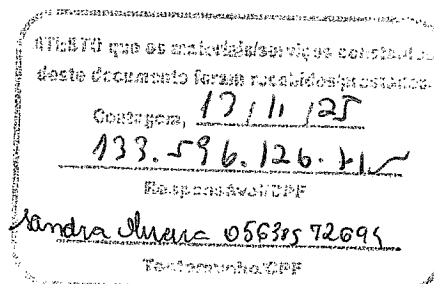 ATESTO que os materiais/serviços constantes
deste documento foram recebidos/prestados.
Contagem, 17/11/25
133.596.126-71
Responsável/CPF
Sandra 05638572695
Testemunha/CPF